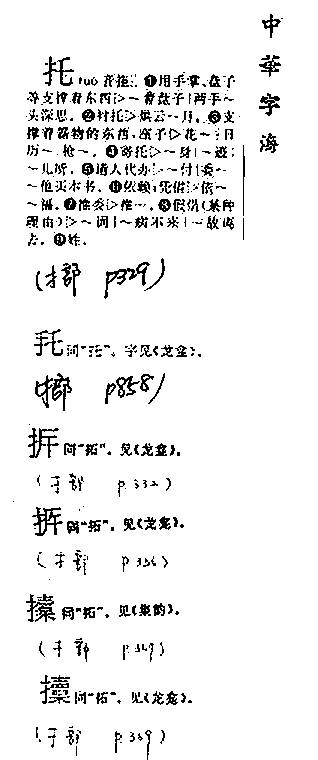 中華字海
托 tuō 音拖。❶用手掌、盘子
等支撑着东西▷~着盘子|两手~
头深思。❷衬托▷烘云~月。❸支
撑着器物的东西,座子▷花~|日
历~|枪~。❹寄托▷~身|~迹|
~儿所。❺请人代办▷~付|委~|
~他买本书。❻依赖;凭借▷依~|
~福。❼推委▷推~。❽假借(某种
理由)▷~词|~病不来|~故离
去。❾姓。
(扌部 p329)
同“托”。字见《龙龛》。
(手部 p858)
同“拓”。见《龙龛》。
(扌部 p.332)
同“拓”。见《龙龛》。
(扌部 p.336)
同“拓”。见《集韵》。
(扌部
同“拓”。见《龙龛》。
(扌部 p.359)